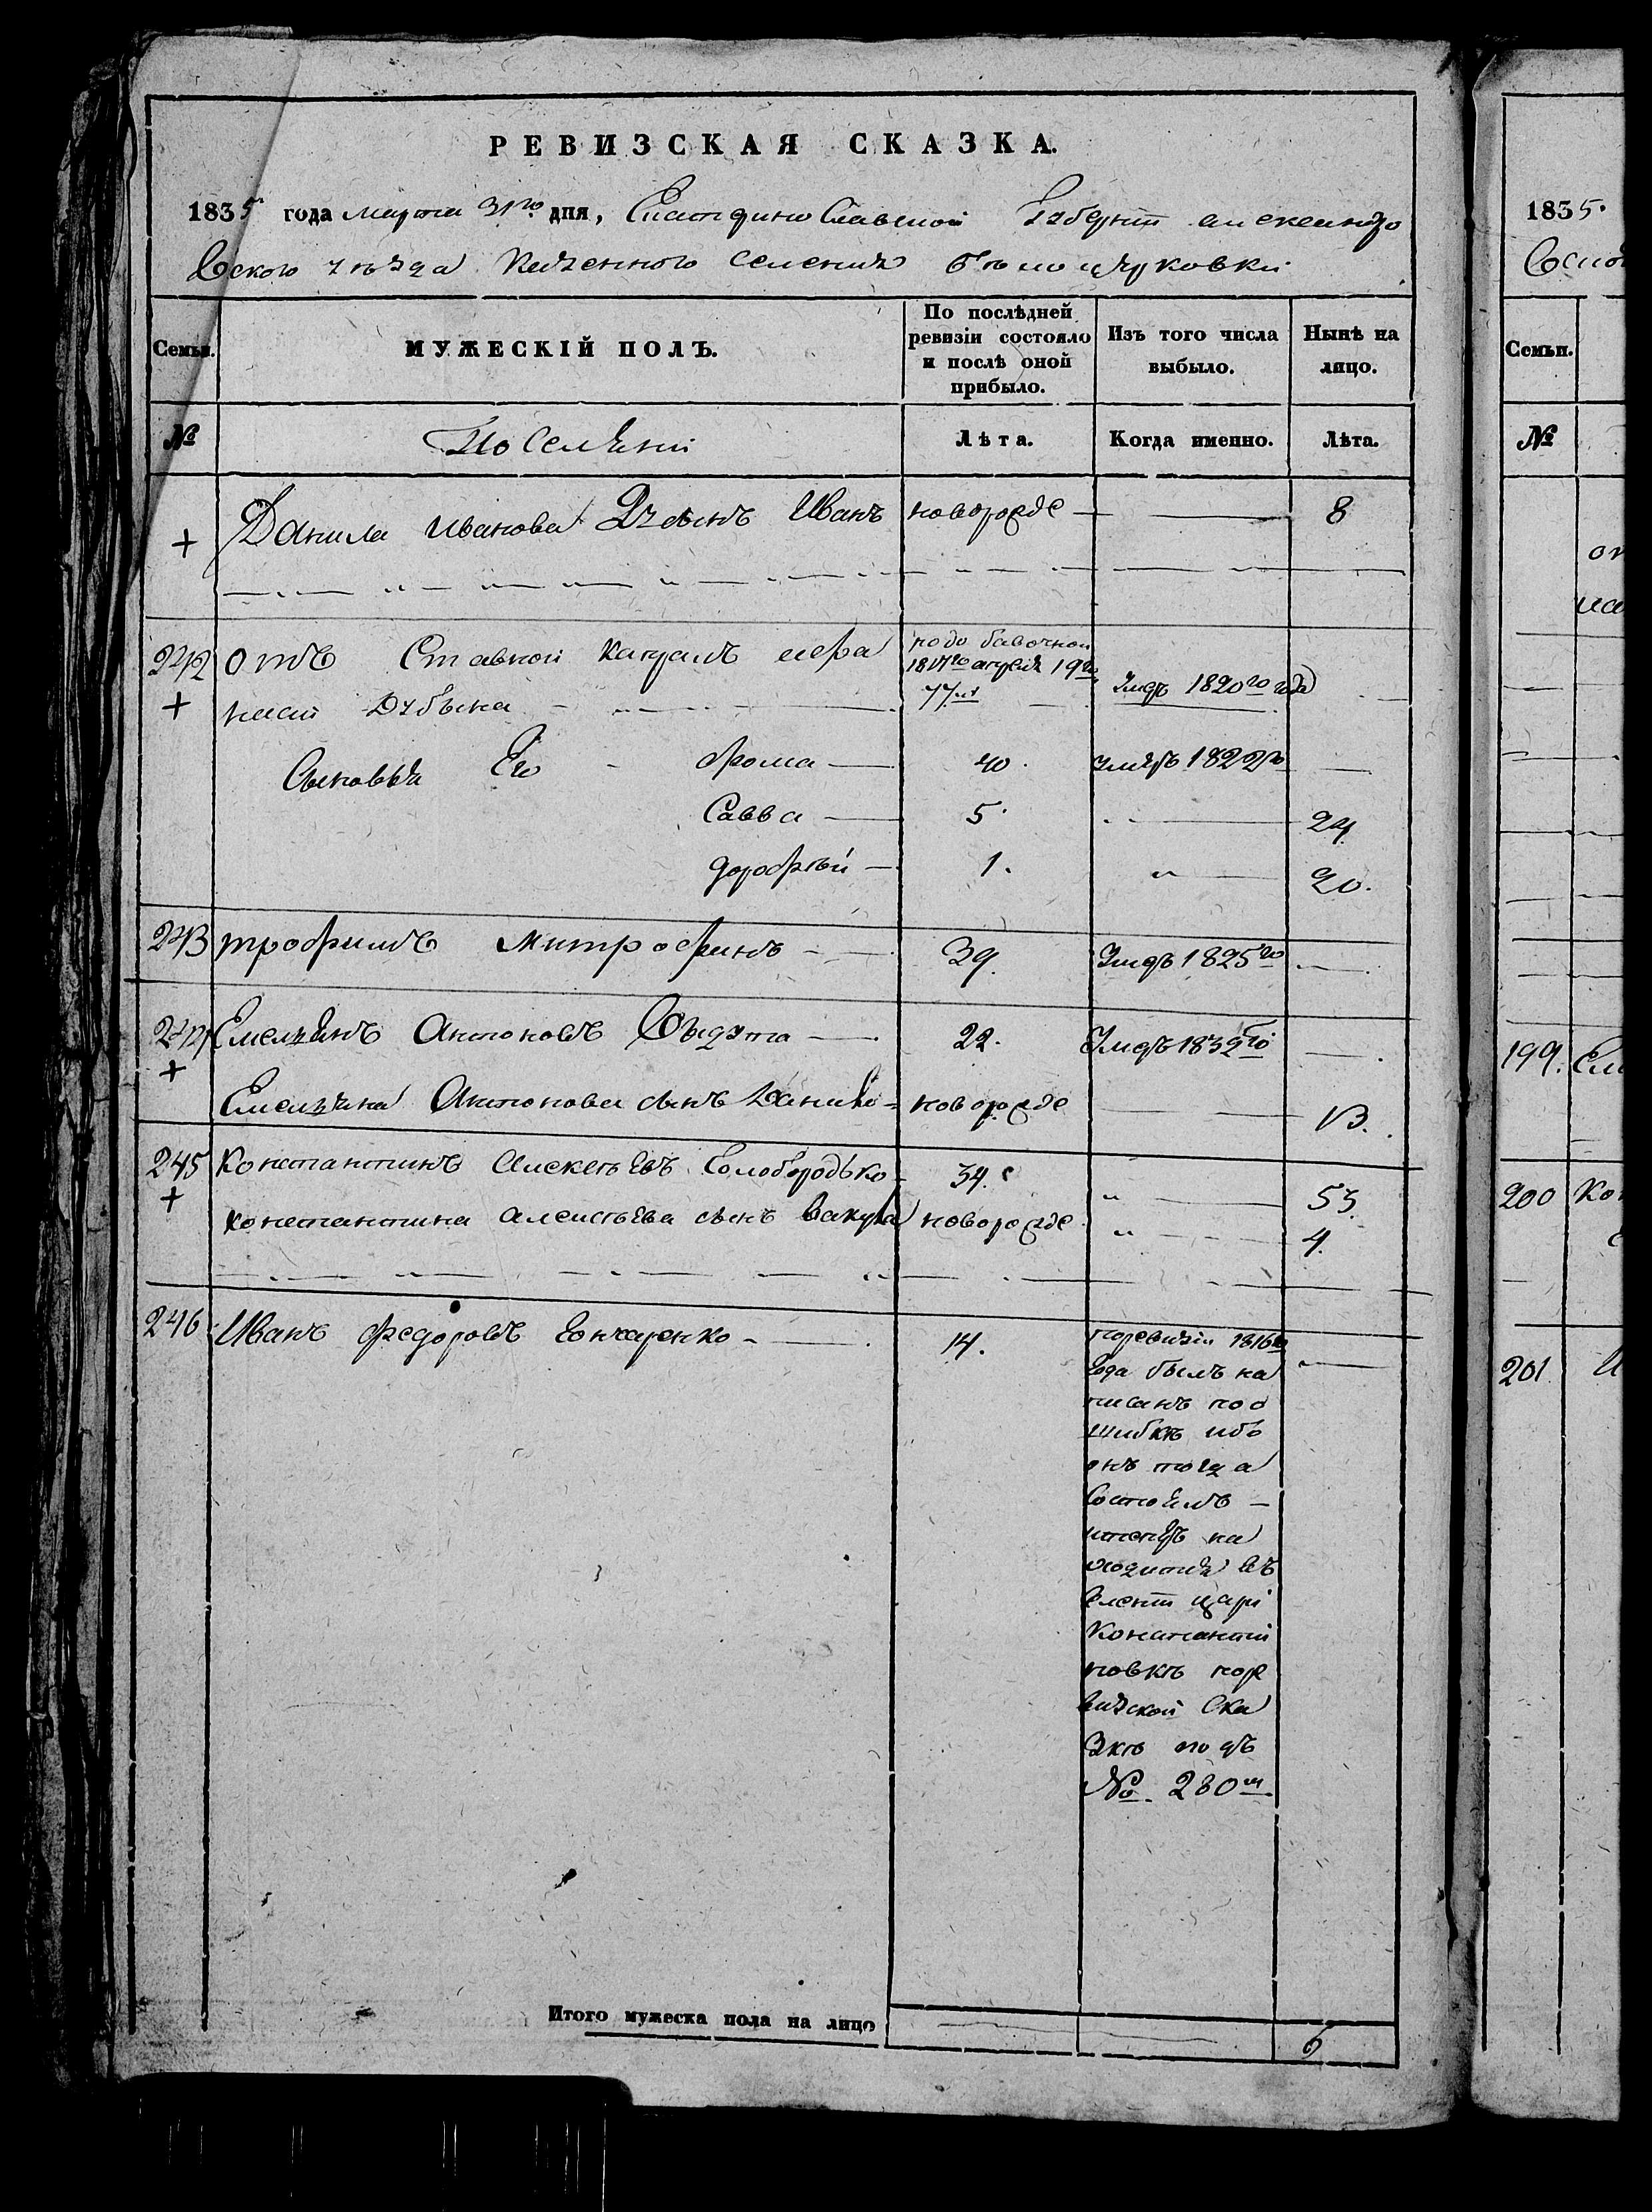 РЕВИЗСКАЯ СКАЗКА.
1835 года марта 31го дня, Екатеринославской Губерніи александро
вского уѣзда казенного селенія Бѣлоцерковки
Семьи.
МУЖЕСКІЙ ПОЛЪ.
По послѣдней ревизіи состояло и послѣ оной прибыло.
Изъ того числа выбыло.
Нынѣ на лицо.
№
Поселяни
Лѣта.
Когда именно.
Лѣта.
+ Данила Иванова сынъ Иванъ новорожде — — 8
242 отст Ставной капралъ
подо бавочной
1817го апреля 19го
77
Умеръ 1820го года
+ Дубына
Сыновья Его Фома — 40. умеръ 1822го —
Савва — 5. — 24
дорофѣй — 1. — 20.
243 трофимъ Митрофинъ — 39. Умеръ 1825го —
244 Емельянъ Антоновъ — 22. Умеръ 1832го —
+
Емельяна Антонова сынъ Данило новорожде — 13.
245 Константинъ Алексѣевъ Голобородько 34. — 53.
+ константина алексѣева сынъ Вакула новорожде — 4.
246 Иванъ федоровъ Гончаренко — 14.
поревизіи 1816го
года былъ на
писанъ поо
шибкѣ ибо
онъ тогда
Состоялъ —
итеперъ на
ходится въ
Селеніи цари
Константи
новкѣ поре
визской Ска
зкѣ подъ
№. 280м.
Итого мужеска пола на лицо
6
1835.
Семьи.
№
199.
200
201